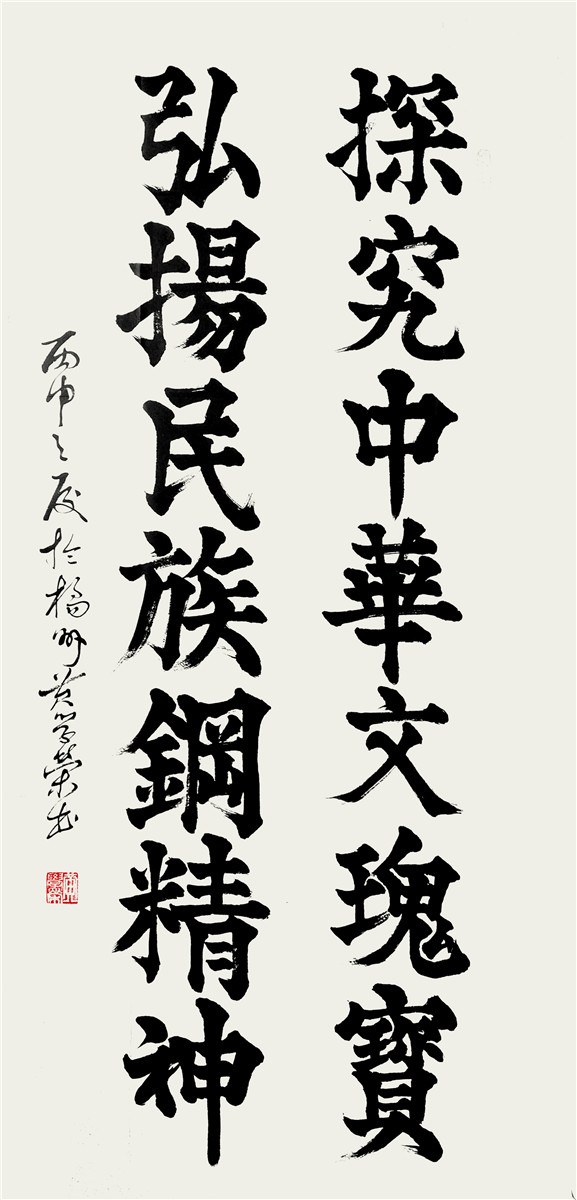 探究中華文瑰寶
弘揚民族鋼精神
丙申之夏於橘州黄学榮书